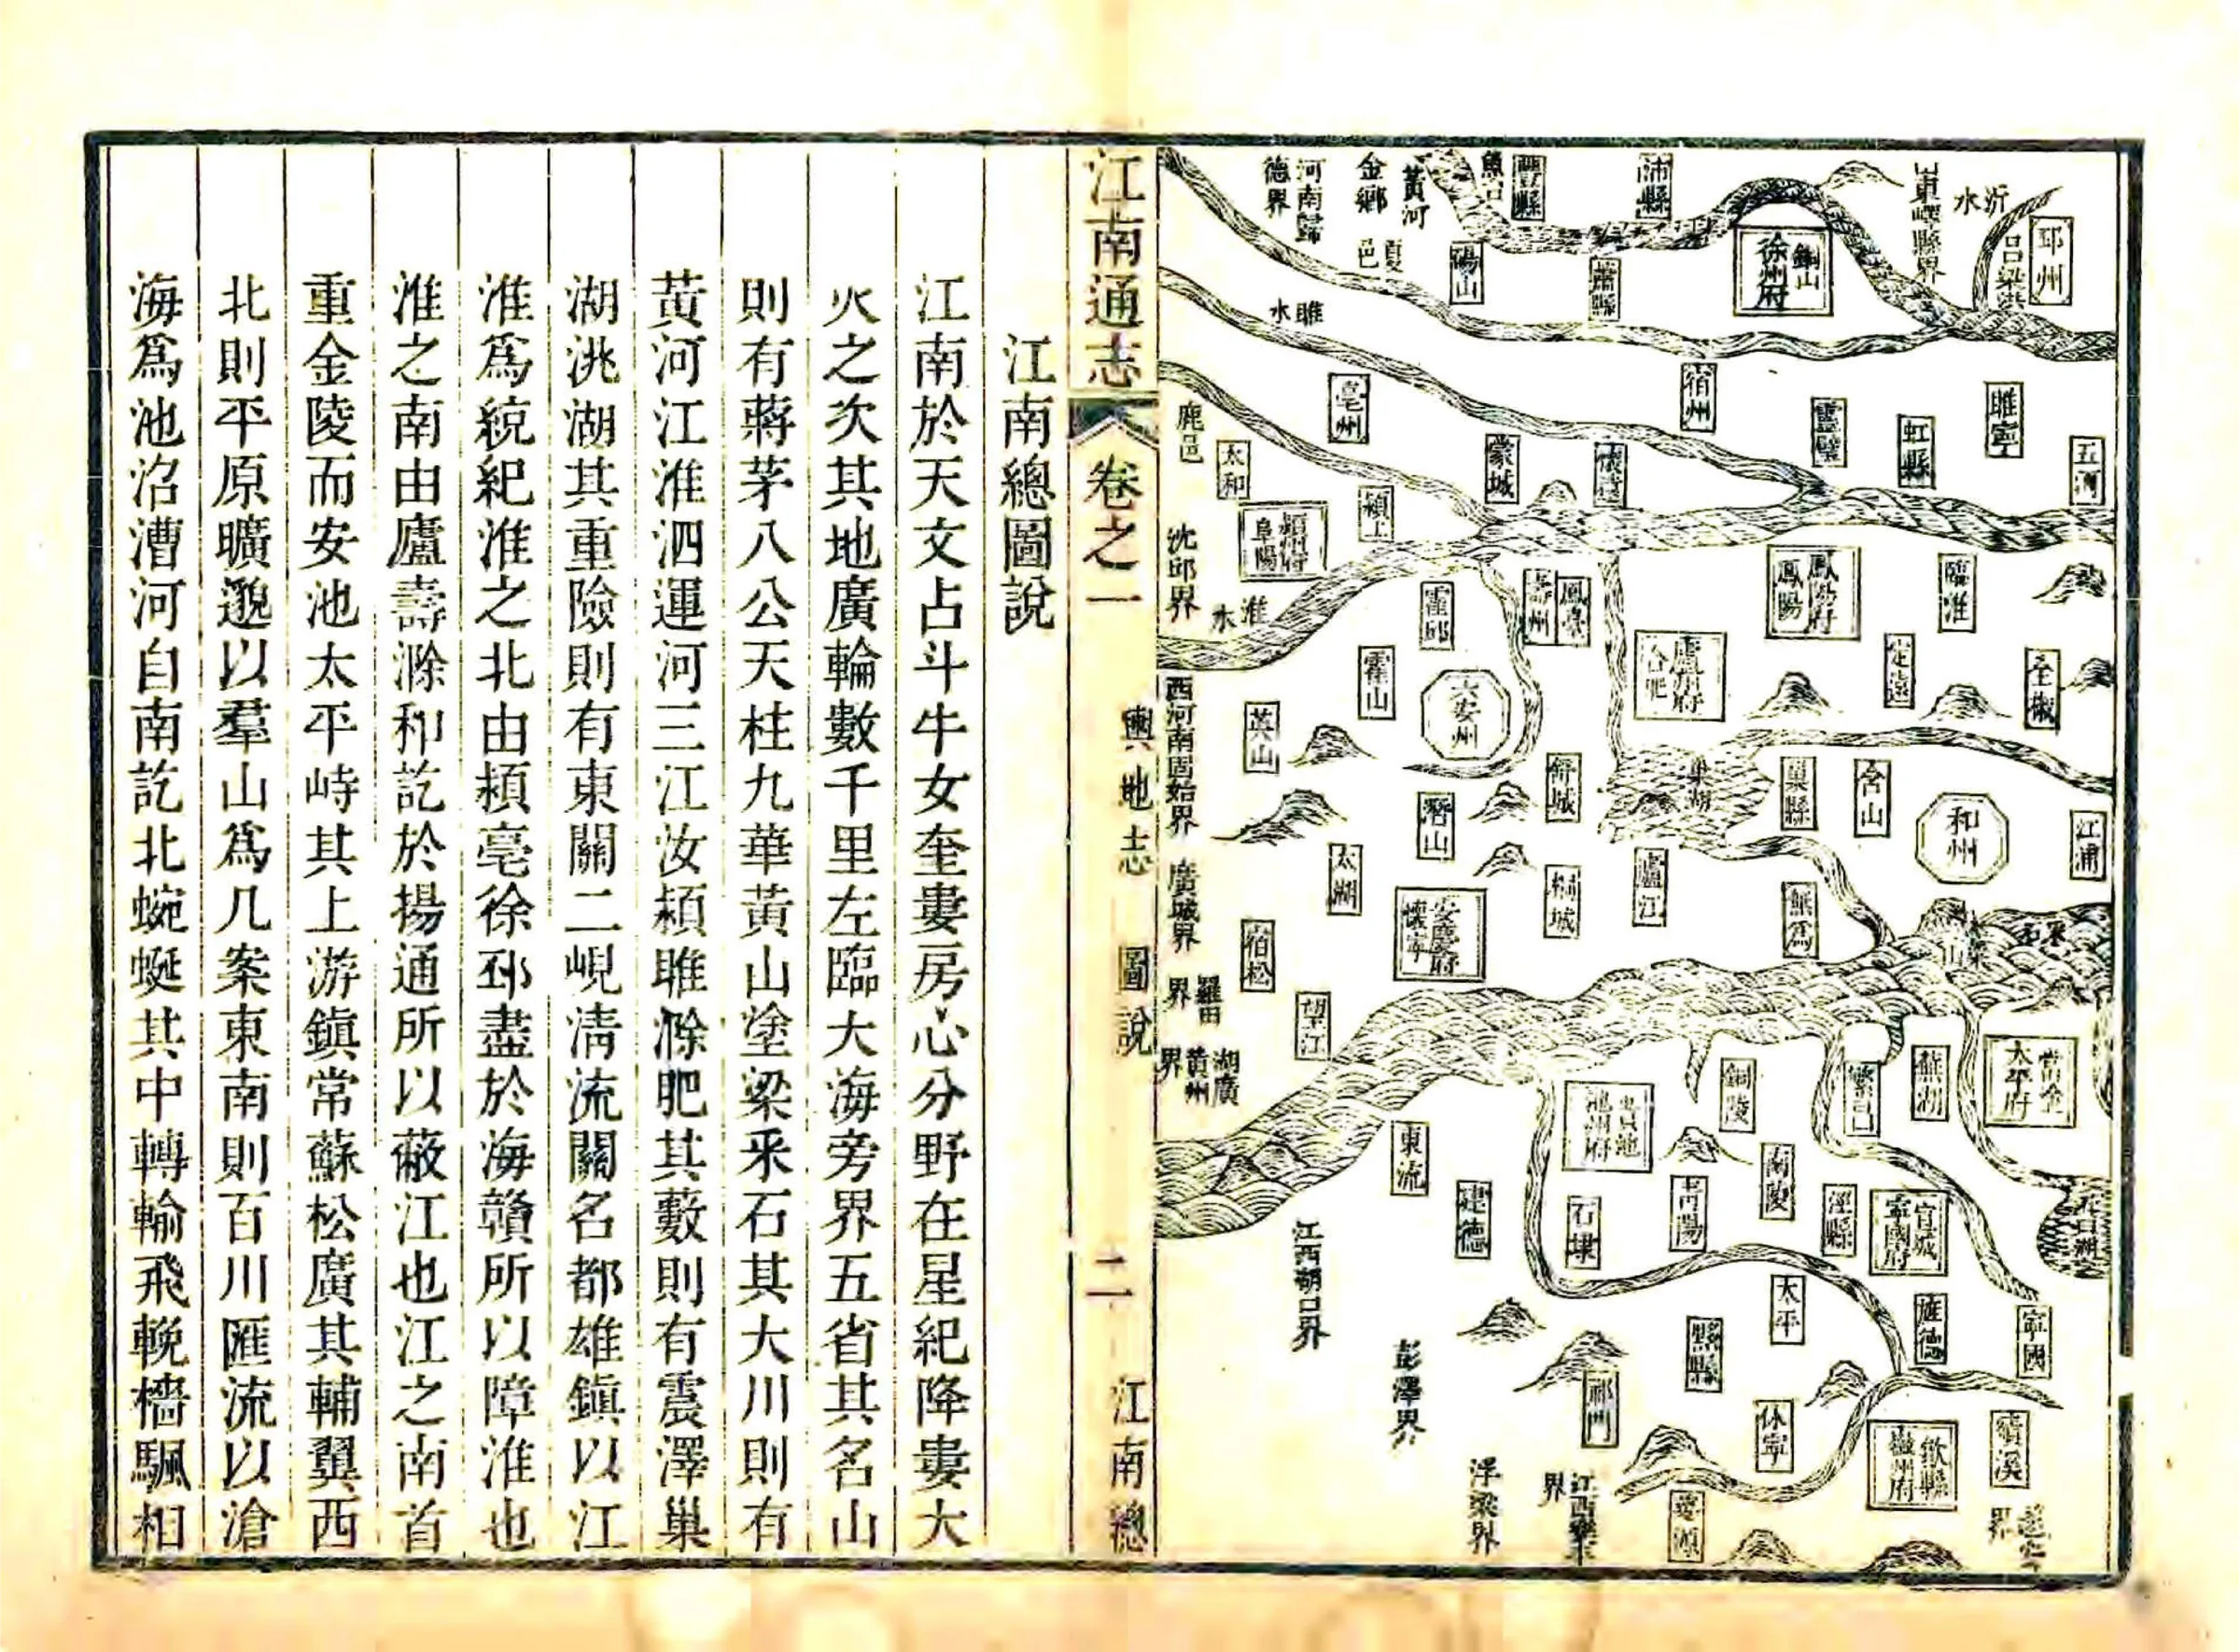 邳州
沂水
吕梁洪
山東嶧縣界
銅山
徐州府
沛縣
蕭縣
豐縣
碭山
黃河
夏邑
金鄉
河南歸
德界
睢水
睢寧
五河
虹縣
靈璧
宿州
懷遠
蒙城
亳州
潁上
潁州府
阜陽
太和
鹿邑
沈邱界
淮水
臨淮
鳳陽府
鳳陽
鳳臺
壽州
霍邱
全椒
定遠
廬州府
合肥
六安州
霍山
英山
西河南固始界
江浦
和州
含山
巢縣
巢湖
舒城
潛山
太湖
無爲
廬江
桐城
安慶府
懷寧
宿松
望江
羅田
界
湖廣
黃州
界
當塗
太平府
蕪湖
繁昌
銅陵
貴池
池州府
東流
建德
石埭
青陽
南陵
涇縣
宣城
寧國府
寧國
旌德
太平
黟縣
祁門
江西湖口界
彭澤界
浮梁界
績溪
歙縣
徽州府
休寧
婺源
江南通志
卷之一
輿地志
圖說
二
江南總
江南總圖說
江南於天文占斗牛女奎婁房心分野在星紀降婁大
火之次其地廣輪數千里左臨大海旁界五省其名山
則有蔣茅八公天柱九華黃山塗梁釆石其大川則有
黃河江淮泗運河三江汝潁睢滁肥其藪則有震澤巢
湖洮湖其重險則有東關二峴淸流關名都雄鎮以江
淮爲綂紀淮之北由潁亳徐邳盡於海贛所以障淮也
淮之南由廬壽滁和訖於揚通所以蔽江也江之南首
重金陵而安池太平峙其上游鎮常蘇松廣其輔翼西
北則平原曠邈以羣山爲几案東南則百川匯流以滄
海爲池沼漕河自南訖北蜿蜒其中轉輸飛輓檣颿相